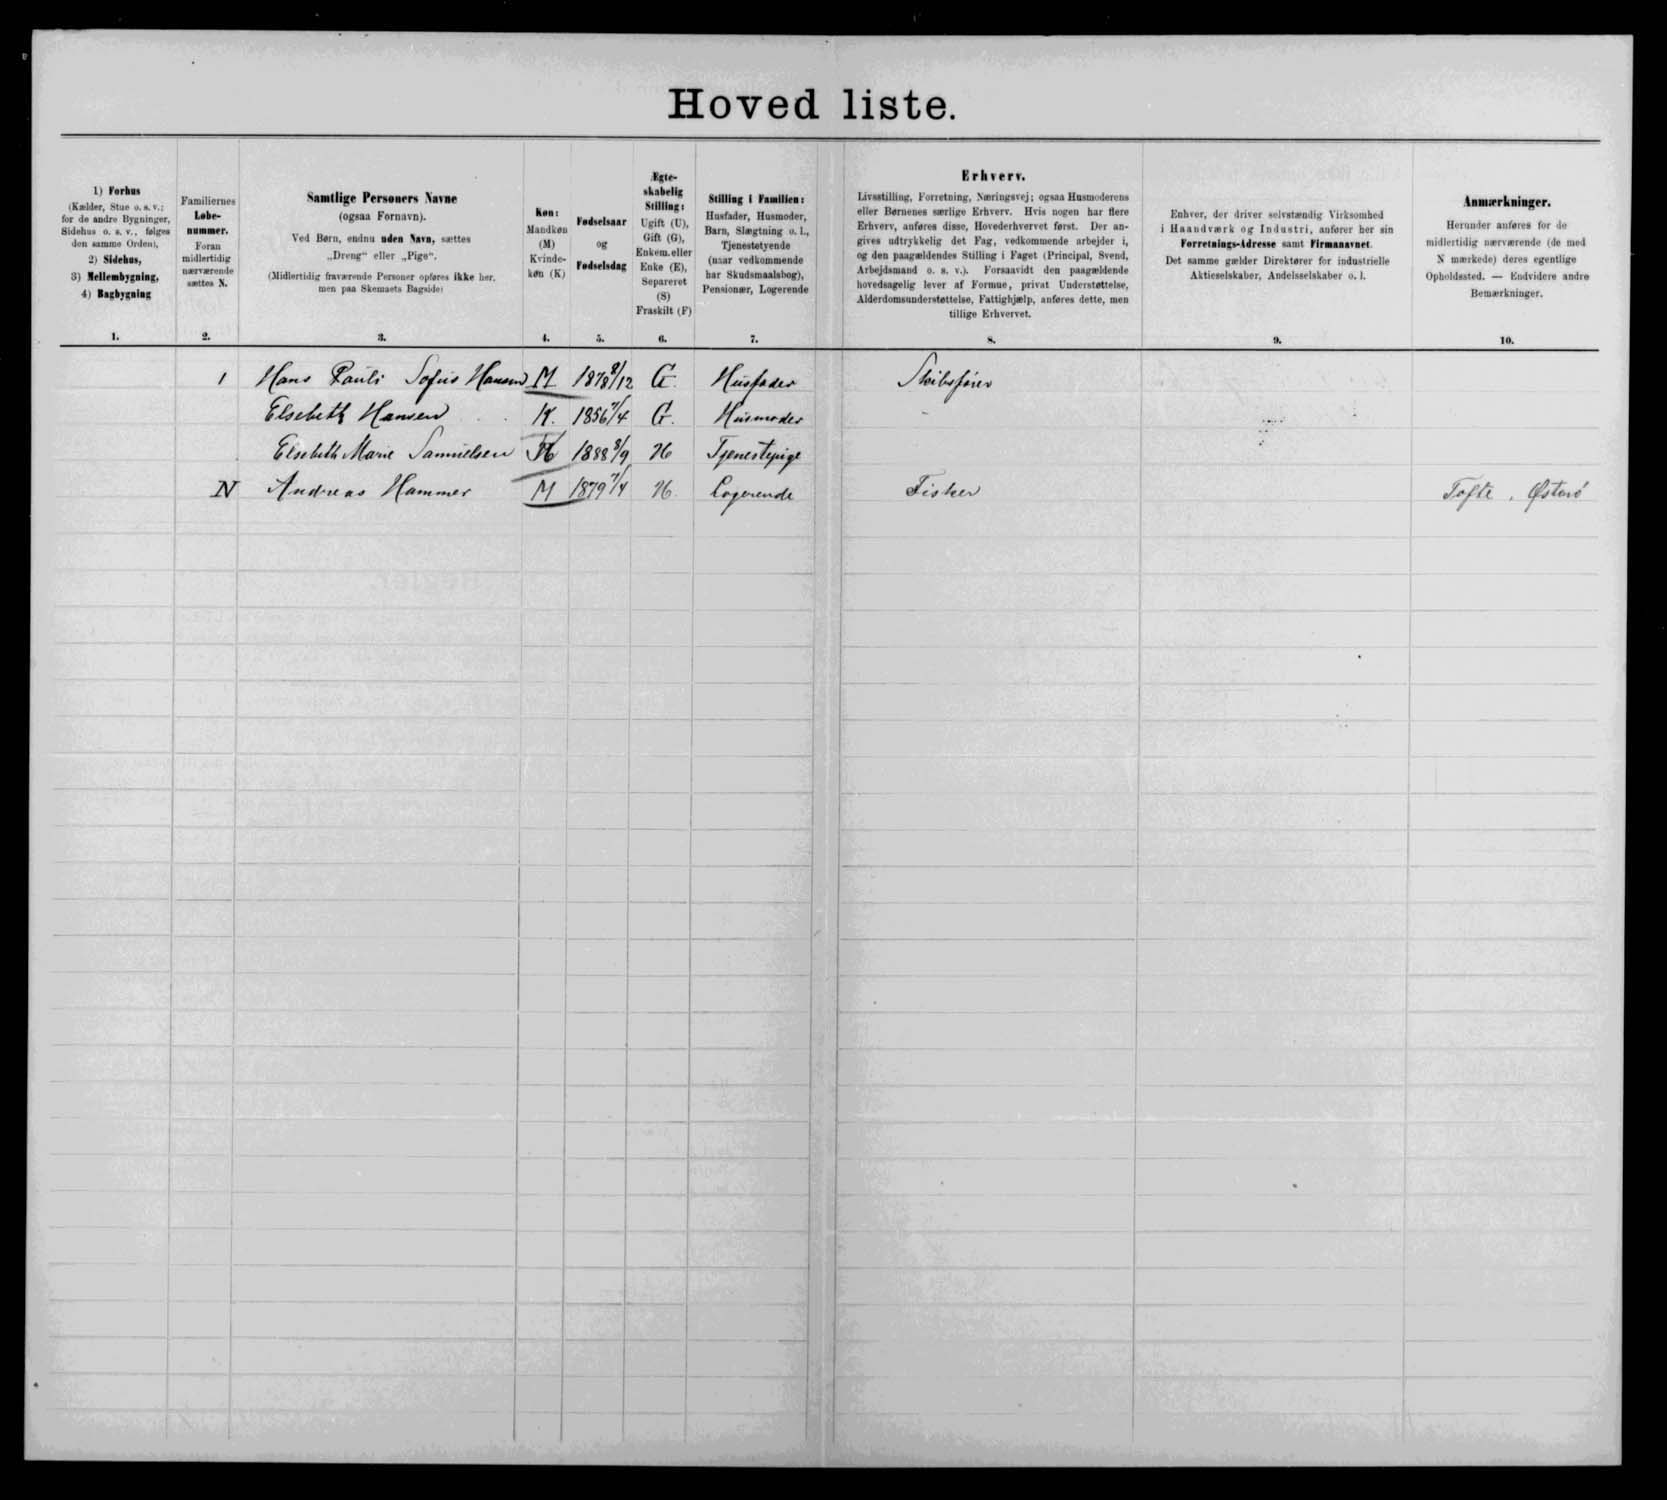 Hoved liste.
1) Forhus
(Kælder, Stue o. s. v.;
for de andre Bygninger,
Sidehus o. s. v., følges
den samme Orden),
2) Sidehus,
3) Mellembygning,
4) Bagbygning
1.
Familiernes
Løbe-
nummer.
Foran
midlertidig
nærværende
sættes N.
2.
Samtlige Personers Navne
(ogsaa Fornavn).
Ved Børn, endnu uden Navn, sættes
„Dreng“ eller „Pige“.
(Midlertidig fraværende Personer opføres ikke her,
men paa Skemaets Bagside)
3.
Køn:
Mandkøn
(M)
Kvinde-
køn (K)
4.
Fødselsaar
og
Fødselsdag
5.
Ægte-
skabelig
Stilling:
Ugift (U),
Gift (G),
Enkem. eller
Enke (E),
Separeret
(S)
Fraskilt (F)
6.
Stilling i Familien:
Husfader, Husmoder,
Barn, Slægtning o. l.,
Tjenestetyende
(naar vedkommende
har Skudsmaalsbog),
Pensionær, Logerende
7.
Erhverv.
Livsstilling, Forretning, Næringsvej; ogsaa Husmoderens
eller Børnenes særlige Erhverv. Hvis nogen har flere
Erhverv, anføres disse, Hovederhvervet først. Der an-
gives udtrykkelig det Fag, vedkommende arbejder i,
og den paagældendes Stilling i Faget (Principal, Svend,
Arbejdsmand o. s. v.). Forsaavidt den paagældende
hovedsagelig lever af Formue, privat Understøttelse,
Alderdomsunderstøttelse, Fattighjælp, anføres dette, men
tillige Erhvervet.
8.
Enhver, der driver selvstændig Virksomhed
i Haandværk og Industri, anfører her sin
Forretnings-Adresse samt Firmanavnet.
Det samme gælder Direktører for industrielle
Aktieselskaber, Andelsselskaber o. l.
9.
Anmærkninger.
Herunder anføres for de
midlertidig nærværende (de med
N mærkede) deres egentlige
Opholdssted. — Endvidere andre
Bemærkninger.
10.
1 Hans Pauli Sofus Hansen M 1878 8/12 G. Husfader Skibsfører
Elsebeth Hansen K. 1856 7/4 G. Husmoder
Elsebeth Marie Samuelsen K 1888 8/9 U Tjenestepige
N Andreas Hammer M 1879 7/4 U. Logerende Fisker Tofte, Østerø